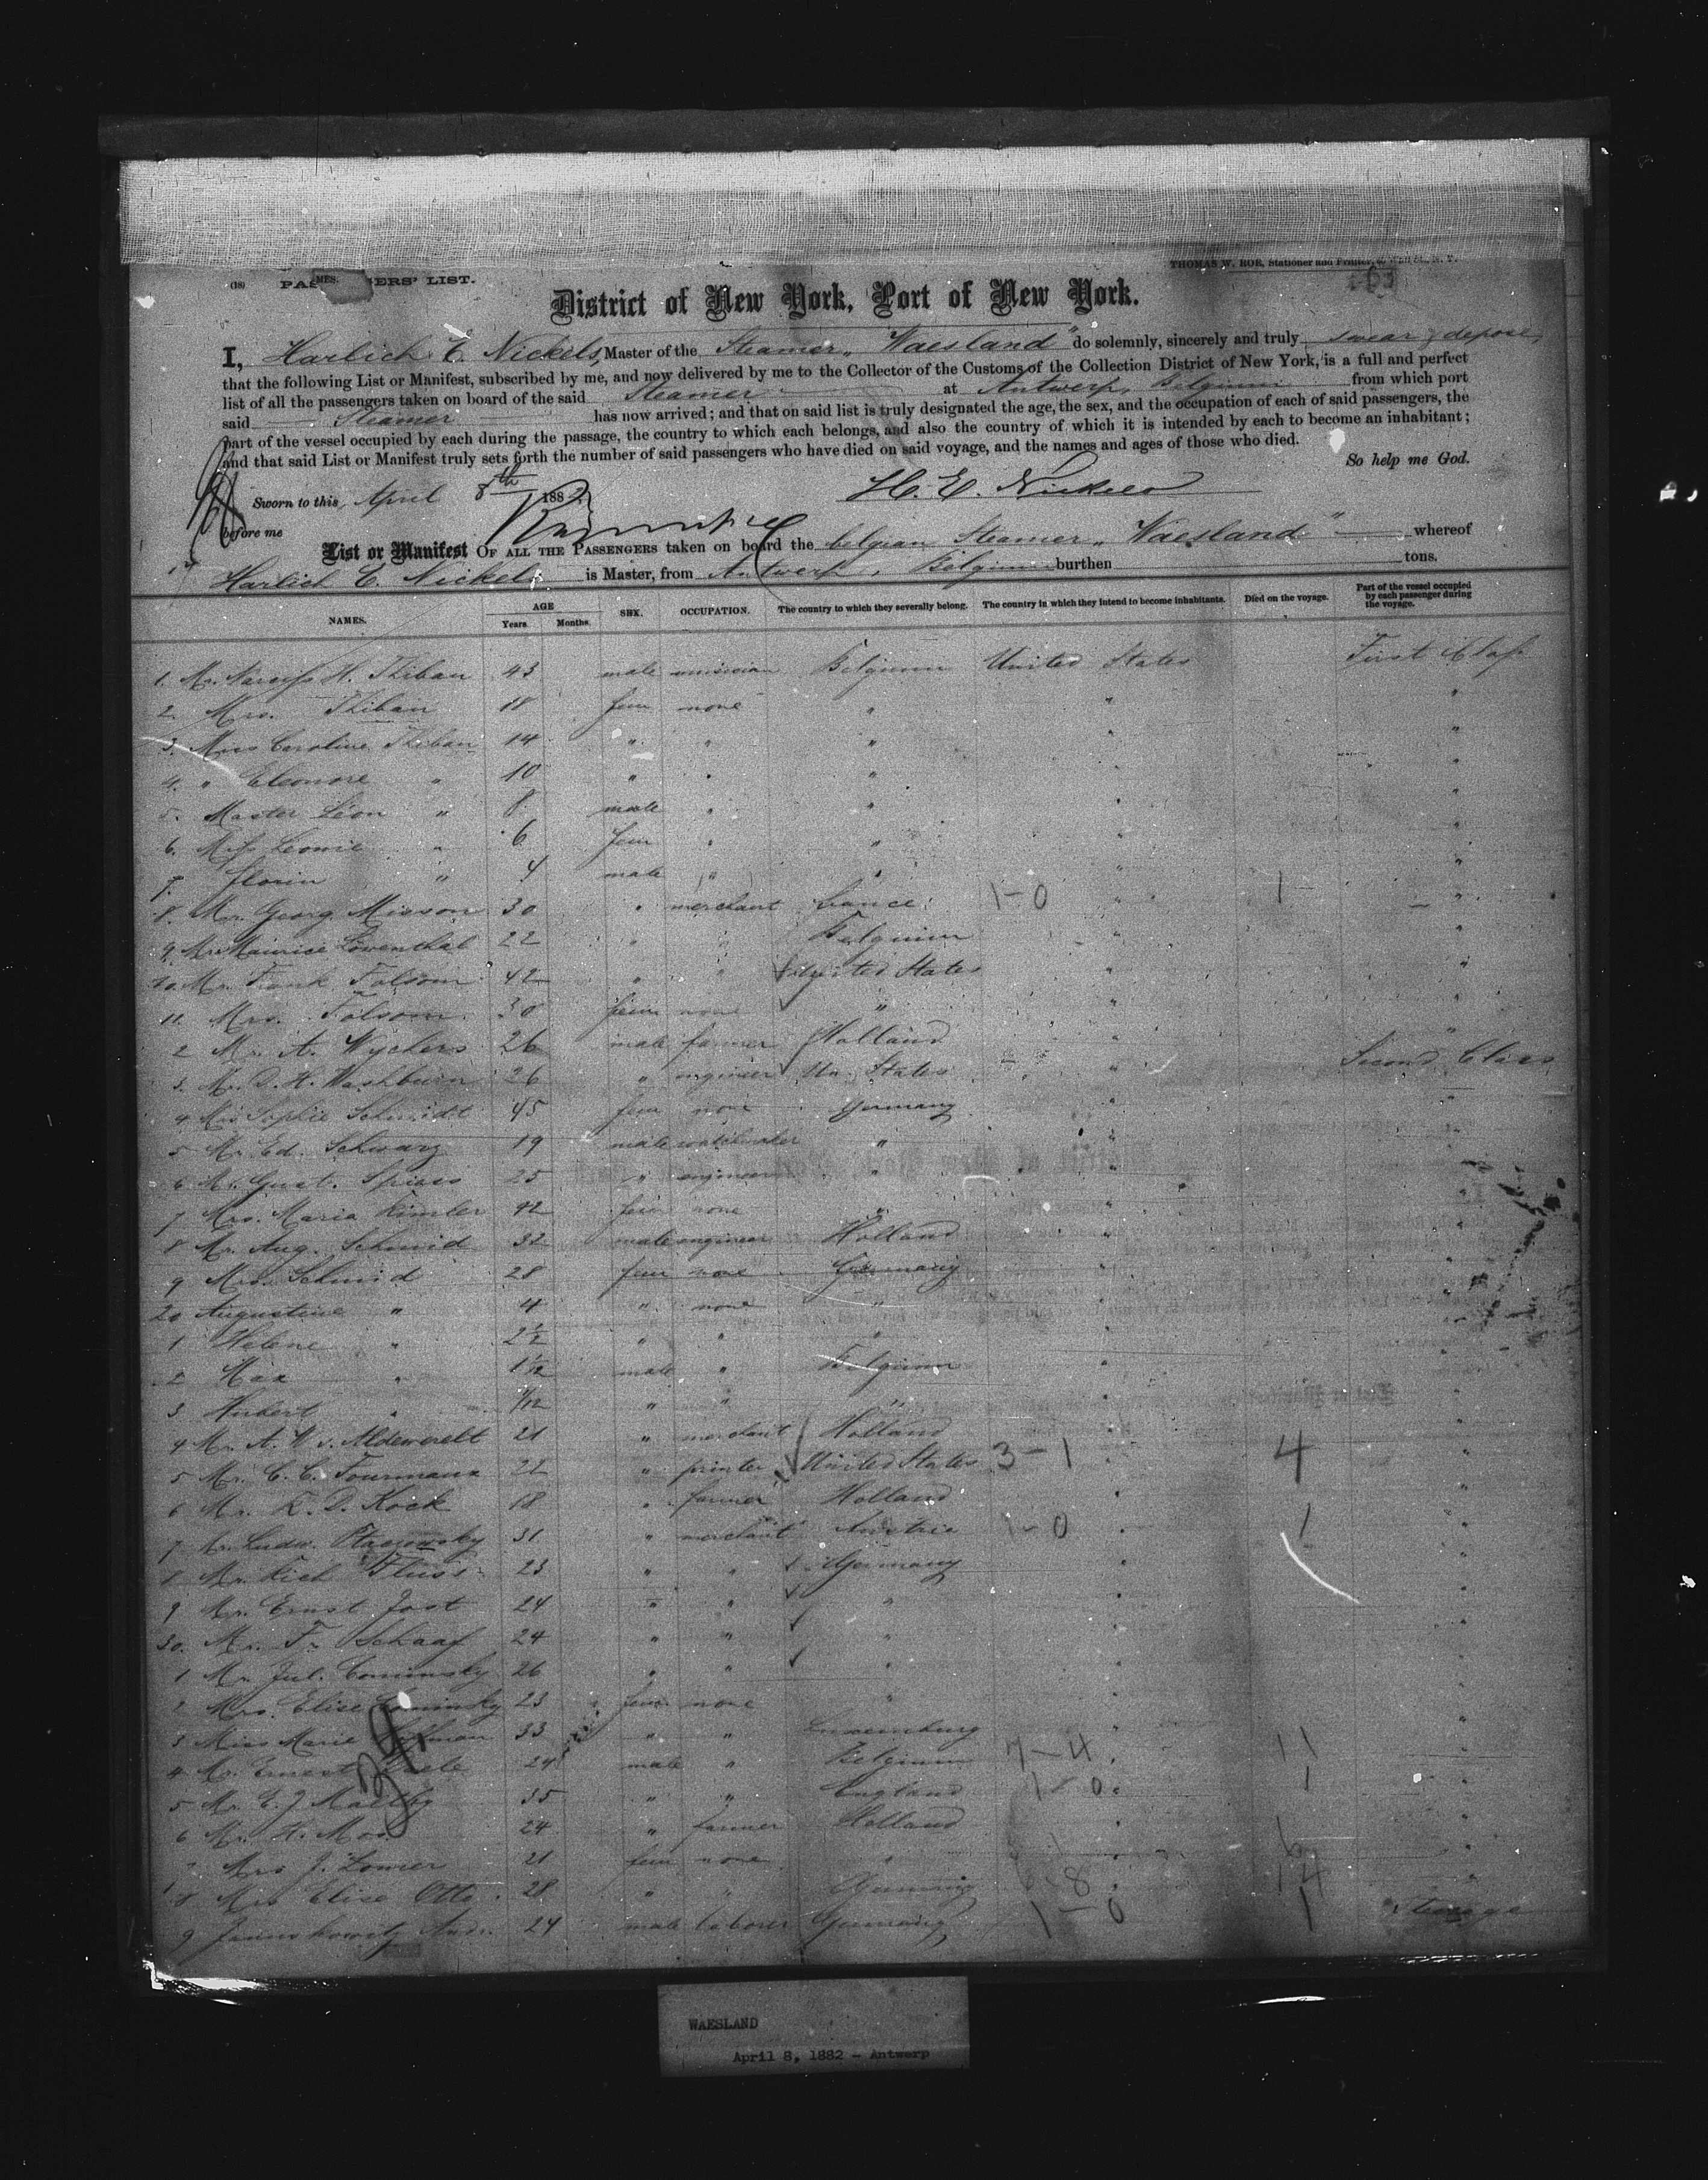 THOMAS W. ROE, Stationer and Printer,
(18) PASSENGERS' LIST.
District of New York, Port of New York.
I, Harlich E. Nickels, Master of the Steamer „Waesland" do solemnly, sincerely and truly swear & depose,
that the following List or Manifest, subscribed by me, and now delivered by me to the Collector of the Customs of the Collection District of New York, is a full and perfect
list of all the passengers taken on board of the said Steamer at Antwerp, Belgium from which port
said Steamer has now arrived; and that on said list is truly designated the age, the sex, and the occupation of each of said passengers, the
part of the vessel occupied by each during the passage, the country to which each belongs, and also the country of which it is intended by each to become an inhabitant;
and that said List or Manifest truly sets forth the number of said passengers who have died on said voyage, and the names and ages of those who died.
So help me God.
Sworn to this, April 8th 188 H. E. Nickels
before me
List or Manifest OF ALL THE PASSENGERS taken on board the belgian Steamer „Waesland" whereof
Harlich E. Nickels is Master, from Antwerp, Belgium burthen tons.
NAMES. AGE Years. Months. SEX. OCCUPATION. The country to which they severally belong. The country in which they intend to become inhabitants. Died on the voyage. Part of the vessel occupied by each passenger during the voyage.
1. Mr. H. Thibau 43 male musician Belgium United States First Class
2. Mrs. Thibau 18 fem none " " "
3. Miss Caroline Thibau 14 " " " " "
4. " Eleonore " 10 " " " " "
5. Master Léon " 8 male " " " "
6. Miss Leonie " 6 fem " " " "
7. florin " 4 male " " " "
8. Mr. Georg Misson 30 " merchant france 1-0 " 1 "
9. Mr Maurice Löwenthal 22 " " Belgium " "
10. Mr. Frank Folsom 42 " " United States " "
11. Mrs. Folsom 30 fem none " " "
2 Mr. A. Wychers 26 male farmer Holland " "
3. Mr. D. H. Washburn 26 " engineer Un. States " Second Class
4 Mrs Sophie Schmidt 45 fem none Germany " "
5 Mr. Ed. Schwarz 19 male watchmaker " " "
6 Mr. Gust. Spiess 25 " engineer " " "
7 Mrs. Maria Kimler 42 fem none " " "
8 Mr. Aug. Schmid 32 male engineer Holland " "
9 Mrs. Schmid 28 fem none Germany " "
20 Augustine " 4 " none " " "
1 Helene " 2½ " " " " "
2 Max " 1 1/12 male " Belgium " "
3 Hubert " 1/12 " " " " "
4 Mr. A. W. v. Aldewerelt 21 " merchant Holland " "
5 Mr. C. C. Fourmaux 22 " printer United States 3-1 " 4 "
6 Mr. K. D. Kock 18 " farmer Holland " "
7 Mr. Ludw. 31 " merchant Austria 1-0 " 1 "
8 Mr. Rich Fluss 23 " " Germany " "
9 Mr. Ernst Jost 24 " " " " "
30. Mr. Fr. Schaaf 24 " " " " "
1 Mr. Jul. Cominsky 26 " " " " "
2 Mrs. Elise Cominsky 23 fem none " " "
3 Miss Marie 33 " " Luxemburg " "
4 Mr. Ernest 24 male " Belgium 7-4 " 11 "
5 Mr. E. J Maltby 35 " " England 1-0 " 1 "
6 Mr. H. Mos 24 " farmer Holland " "
7 Mrs J. 21 fem none " " 6 "
8 Mrs Elise Otto 28 " " Germany 6-8 " 14 "
9 Andr. 24 male laborer Germany 1-0 1 Steerage
WAESLAND
April 8, 1882 - Antwerp